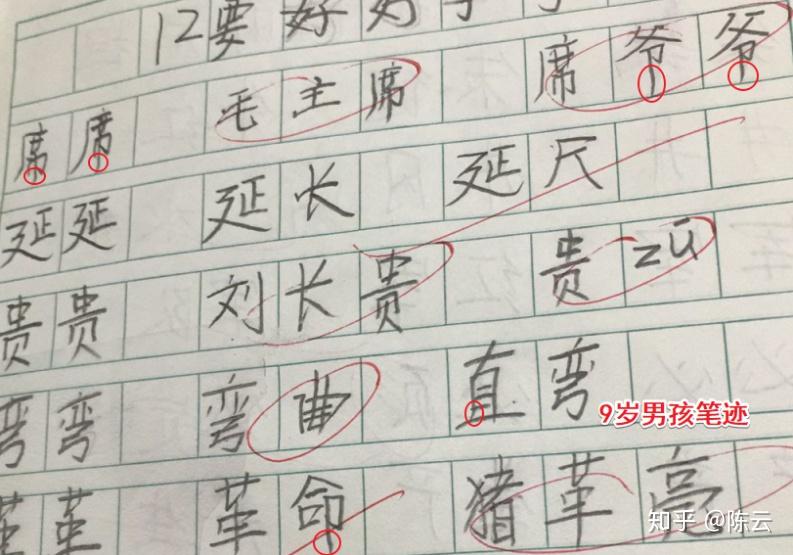 12要好好
席席 毛主席 席爷爷
延延 延长 延尺
贵贵 刘长贵 贵zú
弯弯 弯曲 直弯
9岁男孩笔迹
革革 革命 猪革亮
知乎 @陈云